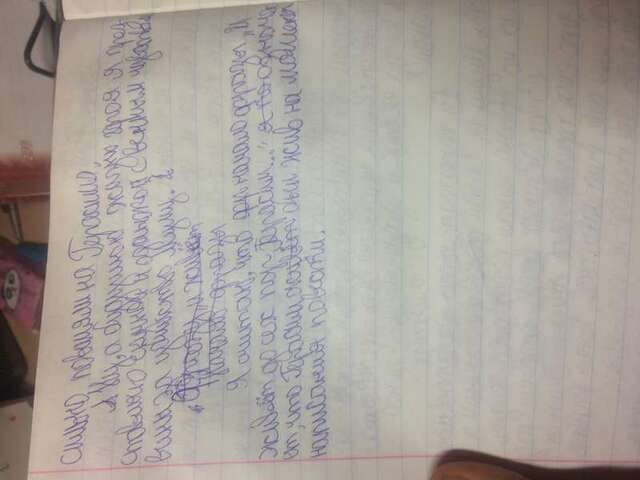 сильно повлияли на Герасима.
Ну, а будущюю жизнь героя я пред-
ставляю скучной и однакой с вечным чувством
вины за убийство Муму. Я
и живёт
начало фразы
Я считаю, что начало фразы „И
живёт до сех пор Герасим..." означа-
ет, что Герасим был жив на момент
написания повести.